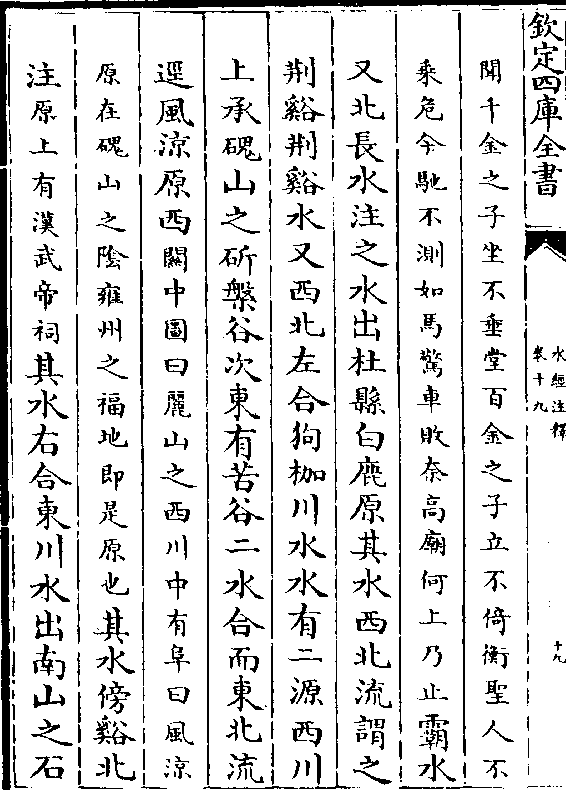 欽定四庫全書
水經注釋
卷十九
十九
聞千金之子坐不垂堂百金之子立不倚衡聖人不
乘危今馳不測如馬驚車敗奈高廟何上乃止霸水
又北長水注之水出杜縣白鹿原其水西北流謂之
荆谿荆谿水又西北左合狗枷川水水有二源西川
上承磈山之斫槃谷次東有苦谷二水合而東北流
逕風涼原西關中圖曰麗山之西川中有阜曰風涼
原在磈山之陰雍州之福地即是原也其水傍谿北
注原上有漢武帝祠其水右合東川水出南山之石